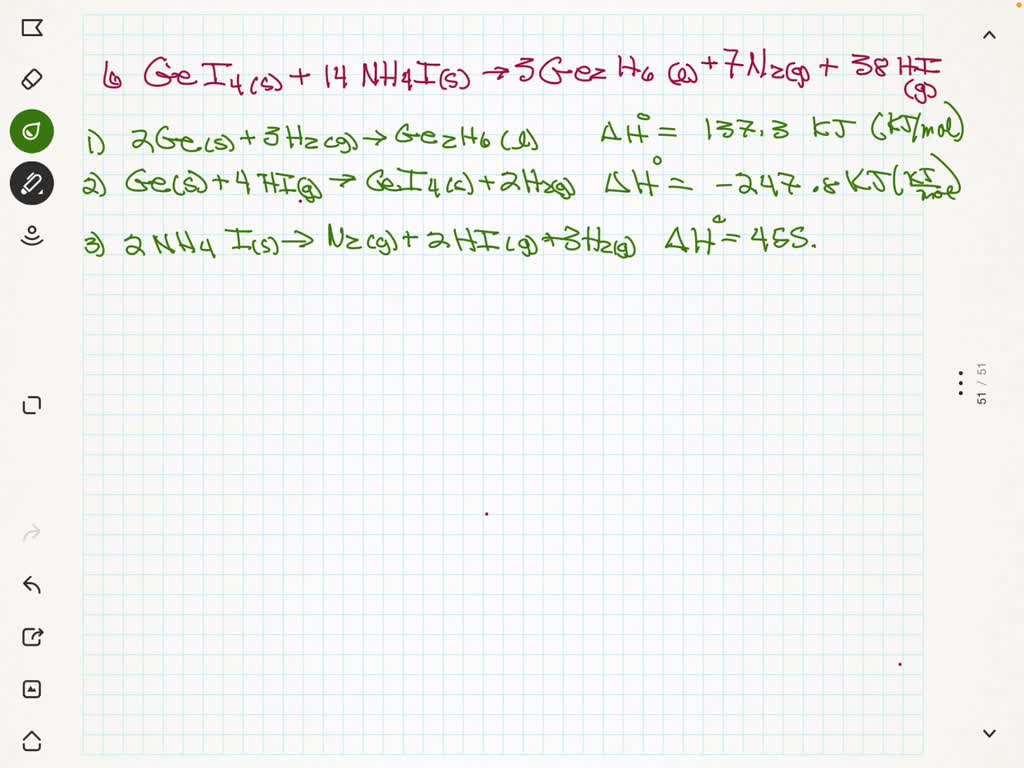 6 GeI4(s) + 14 NH4I(s) → 3Ge2H6(l) + 7N2(g) + 38 HI(g)
1) 2Ge(s) + 3H2(g) → Ge2H6(l) ΔH° = 137.3 KJ (KJ/mol)
2) Ge(s) + 4 HI(g) → GeI4(s) + 2H2(g) ΔH° = -247.8 KJ (KJ/mol)
3) 2 NH4 I(s) → N2(g) + 2HI(g) + 3H2(g) ΔH° = 455.
51 / 51